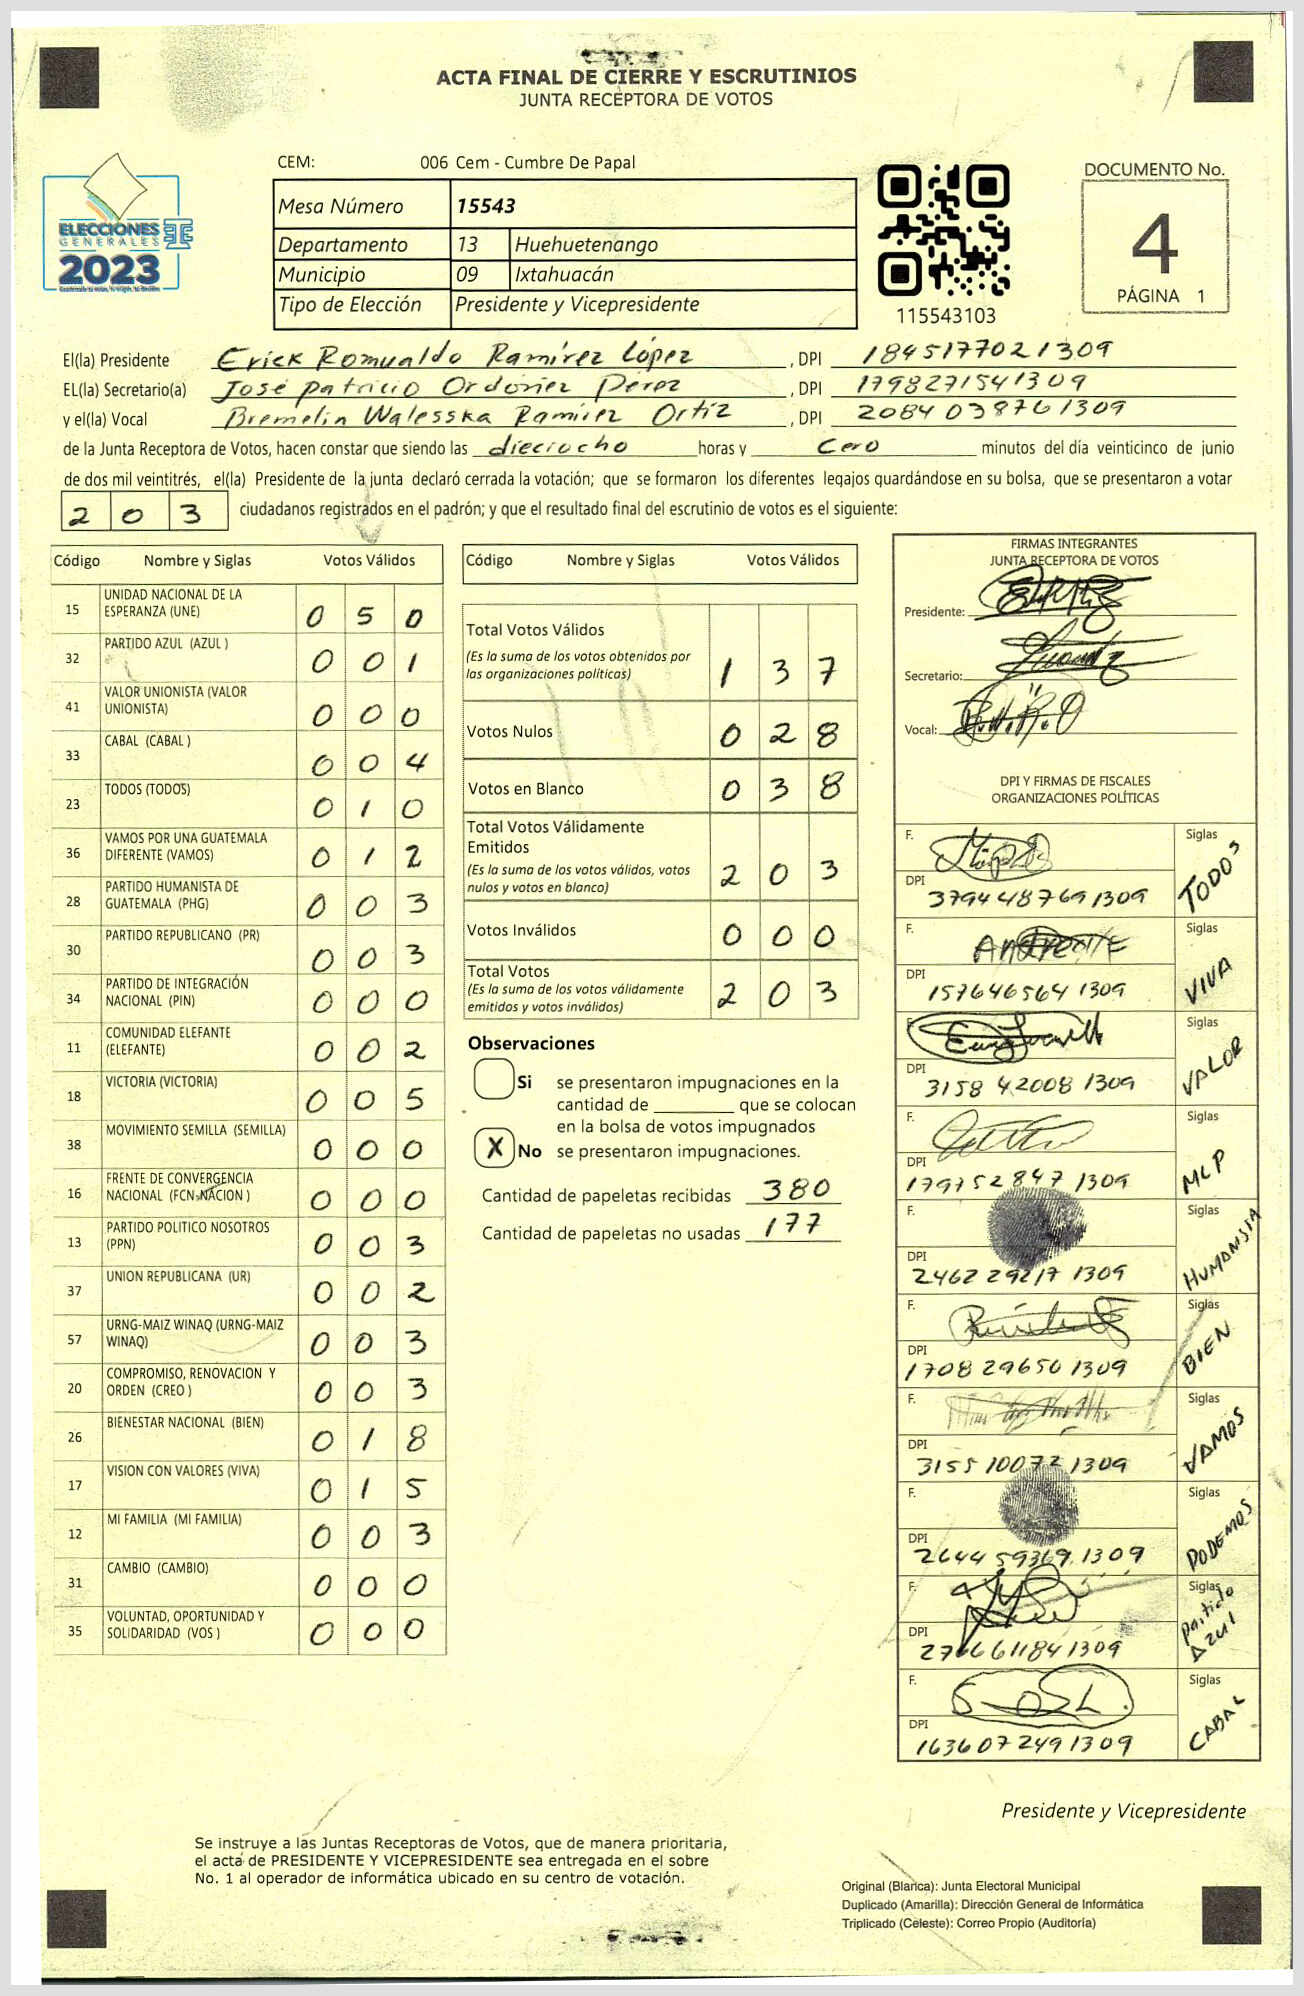 ACTA FINAL DE CIERRE Y ESCRUTINIOS
JUNTA RECEPTORA DE VOTOS
ELECCIONES
GENERALES
2023
CEM: 006 Cem - Cumbre De Papal
Mesa Número 15543
Departamento 13 Huehuetenango
Municipio 09 Ixtahuacán
Tipo de Elección Presidente y Vicepresidente
115543103
DOCUMENTO No.
4
PÁGINA 1
El(la) Presidente Erick Romualdo Ramírez López, DPI 1845177021309
EL(la) Secretario(a) José Patricio Ordóñez Perez, DPI 1798271541309
y el(la) Vocal Bremelin Walesska Ramírez Ortiz, DPI 2084038761309
de la Junta Receptora de Votos, hacen constar que siendo las dieciocho horas y Cero minutos del día veinticinco de junio
de dos mil veintitrés, el(la) Presidente de la junta declaró cerrada la votación; que se formaron los diferentes legajos quardándose en su bolsa, que se presentaron a votar
2 0 3 ciudadanos registrados en el padrón; y que el resultado final del escrutinio de votos es el siguiente:
Código Nombre y Siglas Votos Válidos
15 UNIDAD NACIONAL DE LA
ESPERANZA (UNE) 0 5 0
32 PARTIDO AZUL (AZUL ) 0 0 1
41 VALOR UNIONISTA (VALOR
UNIONISTA) 0 0 0
33 CABAL (CABAL ) 0 0 4
23 TODOS (TODOS) 0 1 0
36 VAMOS POR UNA GUATEMALA
DIFERENTE (VAMOS) 0 1 2
28 PARTIDO HUMANISTA DE
GUATEMALA (PHG) 0 0 3
30 PARTIDO REPUBLICANO (PR) 0 0 3
34 PARTIDO DE INTEGRACIÓN
NACIONAL (PIN) 0 0 0
11 COMUNIDAD ELEFANTE
(ELEFANTE) 0 0 2
18 VICTORIA (VICTORIA) 0 0 5
38 MOVIMIENTO SEMILLA (SEMILLA) 0 0 0
16 FRENTE DE CONVERGENCIA
NACIONAL (FCN-NACION ) 0 0 0
13 PARTIDO POLITICO NOSOTROS
(PPN) 0 0 3
37 UNION REPUBLICANA (UR) 0 0 2
57 URNG-MAIZ WINAQ (URNG-MAIZ
WINAQ) 0 0 3
20 COMPROMISO, RENOVACION Y
ORDEN (CREO ) 0 0 3
26 BIENESTAR NACIONAL (BIEN) 0 1 8
17 VISION CON VALORES (VIVA) 0 1 5
12 MI FAMILIA (MI FAMILIA) 0 0 3
31 CAMBIO (CAMBIO) 0 0 0
35 VOLUNTAD, OPORTUNIDAD Y
SOLIDARIDAD (VOS ) 0 0 0
Código Nombre y Siglas Votos Válidos
Total Votos Válidos
(Es la suma de los votos obtenidos por
las organizaciones políticas) 1 3 7
Votos Nulos 0 2 8
Votos en Blanco 0 3 8
Total Votos Válidamente
Emitidos
(Es la suma de los votos válidos, votos
nulos y votos en blanco) 2 0 3
Votos Inválidos 0 0 0
Total Votos
(Es la suma de los votos válidamente
emitidos y votos inválidos) 2 0 3
Observaciones
Si se presentaron impugnaciones en la
cantidad de ________ que se colocan
en la bolsa de votos impugnados
X No se presentaron impugnaciones.
Cantidad de papeletas recibidas 380
Cantidad de papeletas no usadas 177
FIRMAS INTEGRANTES
JUNTA RECEPTORA DE VOTOS
Presidente:
Secretario:
Vocal:
DPI Y FIRMAS DE FISCALES
ORGANIZACIONES POLÍTICAS
F. Siglas TODOS
DPI 3794487691309
F. Siglas VIVA
DPI 1576465641309
F. Siglas VALOR
DPI 3158420081309
F. Siglas MLP
DPI 1791528471309
F. Siglas HUMANSIA
DPI 2462292171309
F. Siglas BIEN
DPI 1708296501309
F. Siglas VAMOS
DPI 3155100721309
F. Siglas PODEMOS
DPI 2644593691309
F. Siglas partido
Azul
DPI 2766611841309
F. Siglas CABAL
DPI 1636072491309
Presidente y Vicepresidente
Se instruye a las Juntas Receptoras de Votos, que de manera prioritaria,
el acta de PRESIDENTE Y VICEPRESIDENTE sea entregada en el sobre
No. 1 al operador de informática ubicado en su centro de votación.
Original (Blanca): Junta Electoral Municipal
Duplicado (Amarilla): Dirección General de Informática
Triplicado (Celeste): Correo Propio (Auditoría)